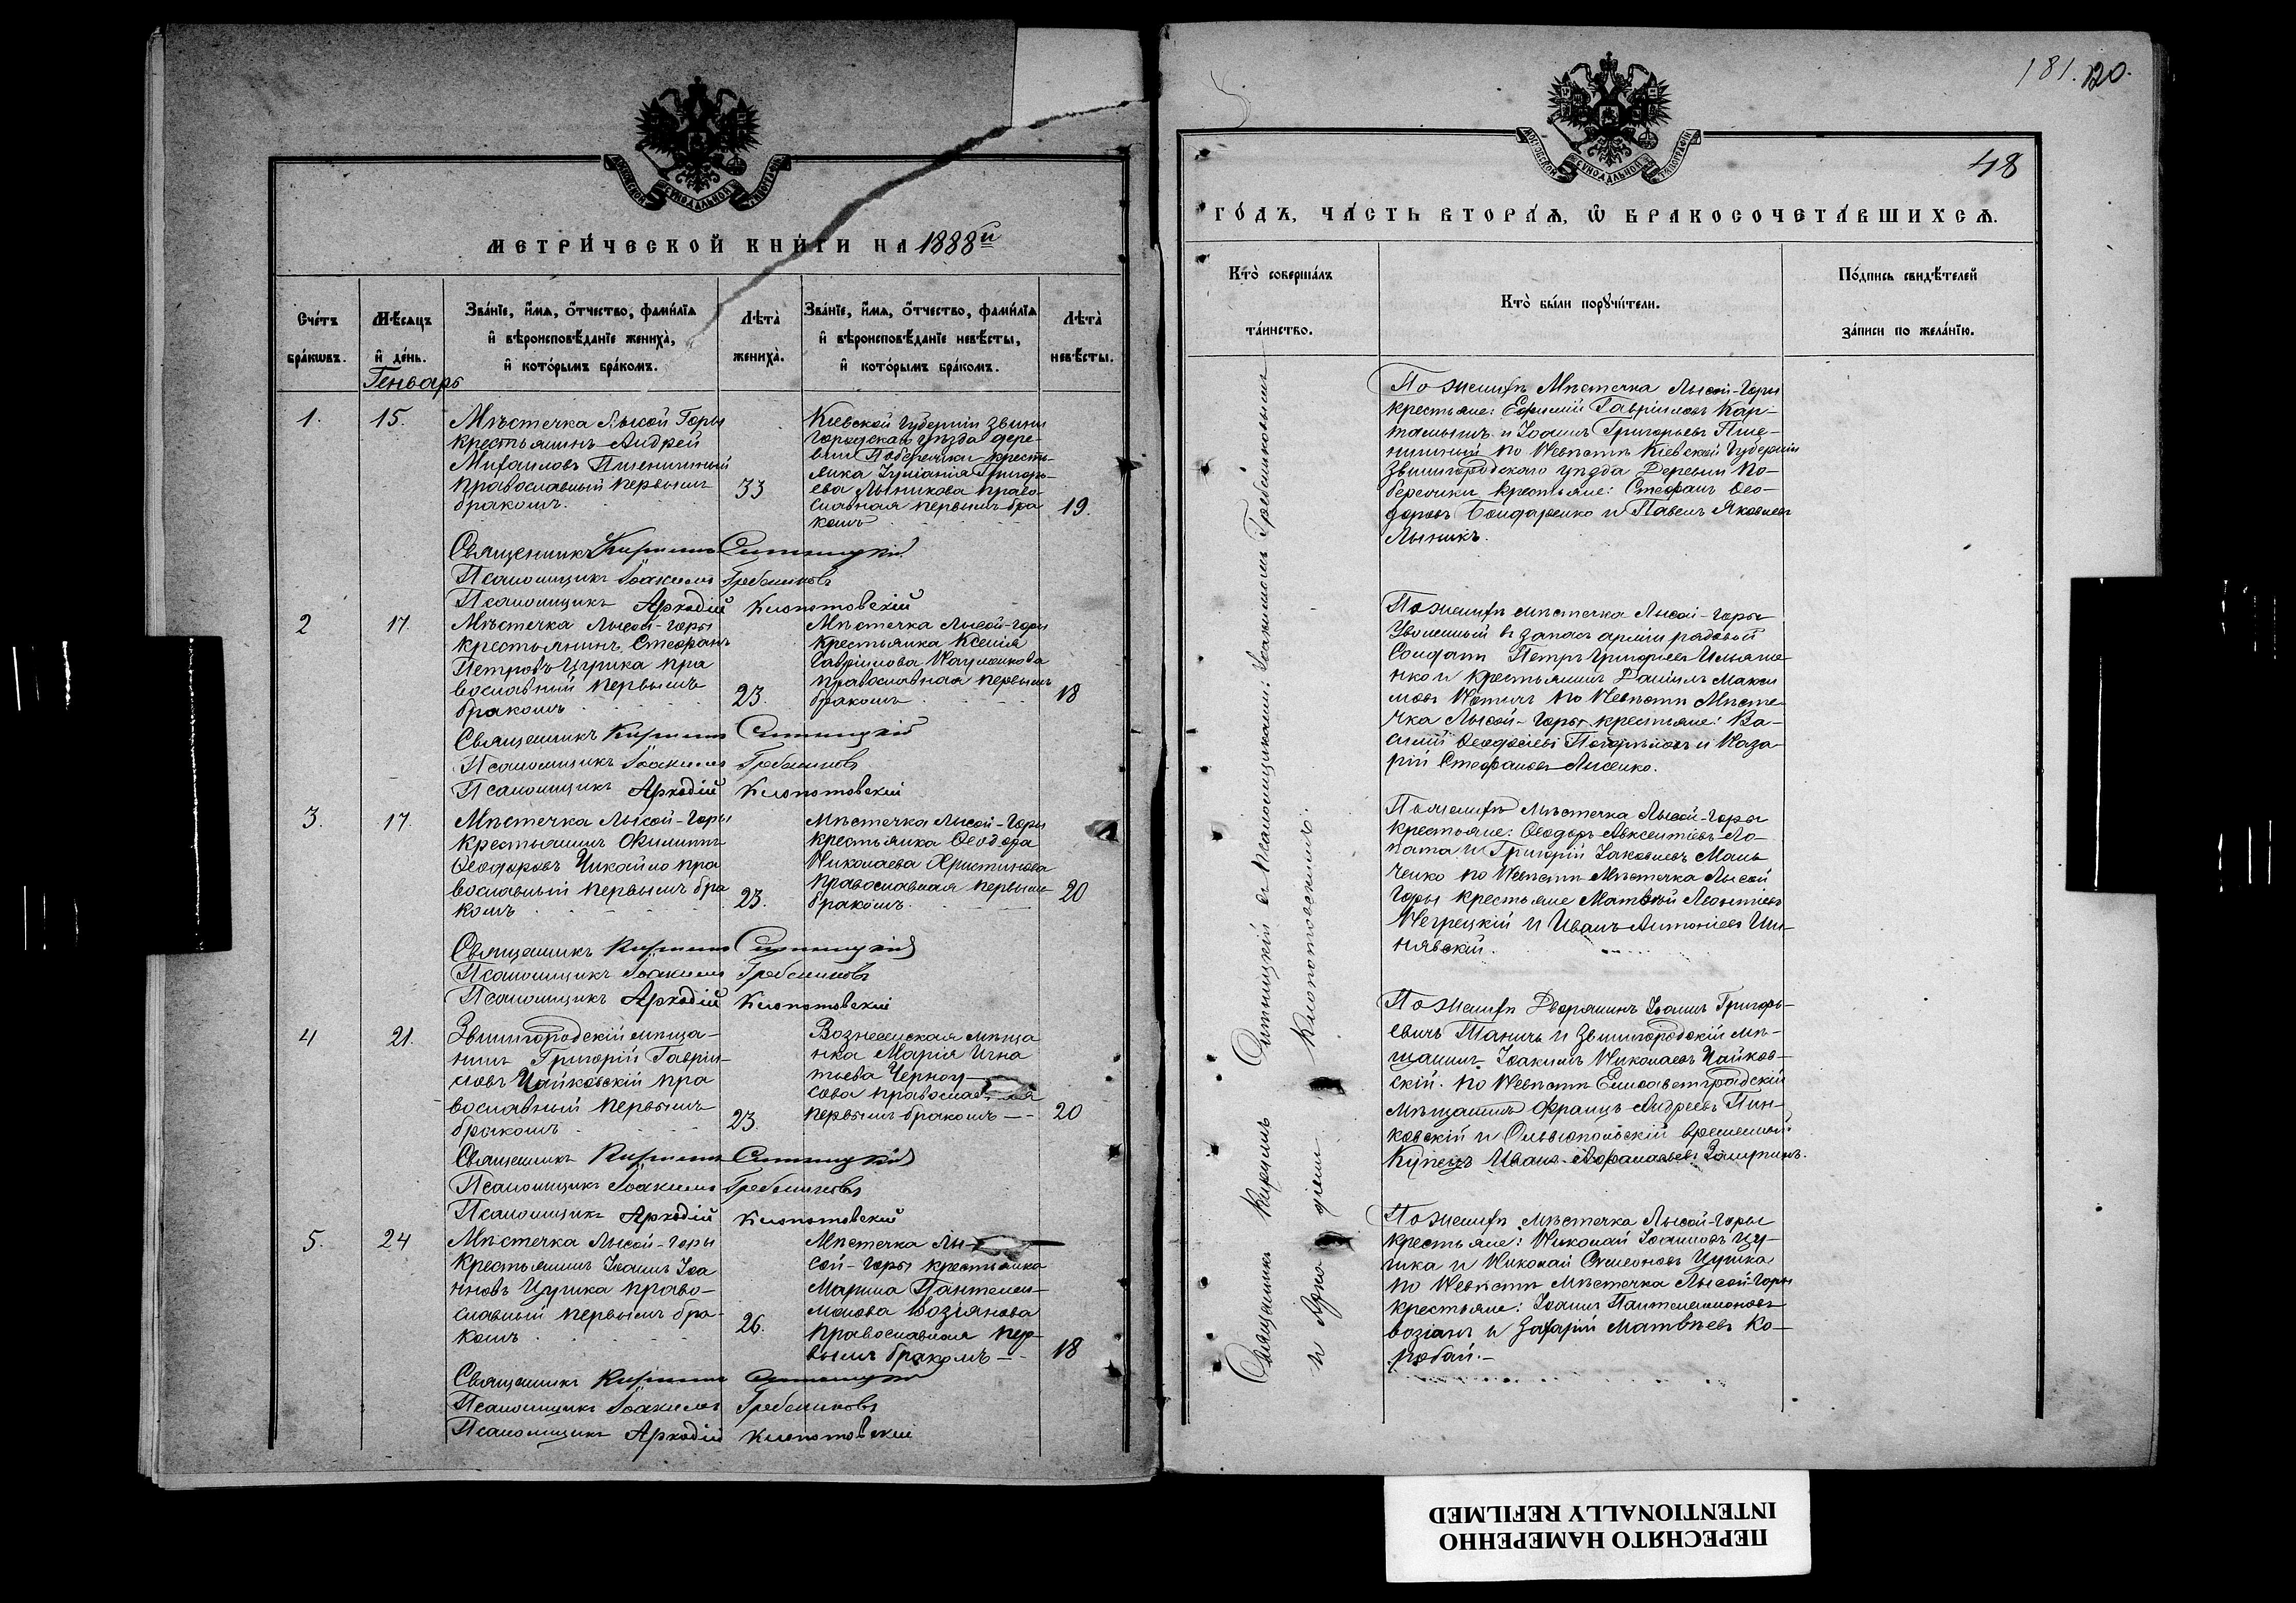 МОСКОВСКОЙ СѴНОДАЛЬНОЙ ТИПОГРАФІИ
МЕТРИ́ЧЕСКОЙ КНИ́ГИ НА 1888й
Сче́тъ бра́кѡвъ.
Мѣ́сѧцъ и҆ де́нь.
Зва́нїе, и҆́мѧ, ѻ҆́тчество, фами́лїѧ
и҆ вѣроисповѣ́данїе жениха̀,
и҆ кото́рымъ бра́комъ.
Лѣ́та̀ жениха̀.
Зва́нїе, и҆́мѧ, ѻ҆́тчество, фами́лїѧ
и҆ вѣроисповѣ́данїе невѣ́сты,
и҆ кото́рымъ бра́комъ.
Лѣ́та̀ невѣ́сты.
Генварь
1.
15.
Мѣстечка Лысой Горы
крестьянинъ Андрей
Михаиловъ Пшеничный
православный первымъ
бракомъ.
33
Кіевской Губерніи Звени
городскаго уѣзда дере-
вни Побережки кресть-
янка Іуліанія Григорь-
ева Лынникова право-
славная первымъ бра
комъ
19.
Священникъ Кириллъ Синицкій
Псаломщикъ Іоакимъ Гребениковъ
Псаломщикъ Аркадій Клопотовскій
2
17.
Мѣстечка Лысой-Горы
крестьянинъ Стефанъ
Петровъ Цурика пра
вославный первымъ
бракомъ
23.
Мѣстечка Лысой-Горы
крестьянка Ксенія
Гавріилова Науменкова
православная первымъ
бракомъ
18
Священникъ Кириллъ Синицкій
Псаломщикъ Іоакимъ Гребениковъ
Псаломщикъ Аркадій Клопотовскій
3.
17.
Мѣстечка Лысой-Горы
крестьянинъ Филиппъ
Ѳеодоровъ Чикайло пра
вославный первымъ бра
комъ
23.
Мѣстечка Лысой-Горы
крестьянка Ѳеодора
Николаева Христинова
православная первымъ
бракомъ
20
Священникъ Кириллъ Синицкій
Псаломщикъ Іоакимъ Гребениковъ
Псаломщикъ Аркадій Клопотовскій
4
21.
Звенигородскій мѣща-
нинъ Григорій Гавріи-
ловъ Чайковскій пра
вославный первымъ
бракомъ
23.
Вознесенская мѣща
нка Марія Игна
тьева Черноу-
сова православная
первымъ бракомъ
20
Священникъ Кириллъ Синицкій
Псаломщикъ Іоакимъ Гребениковъ
Псаломщикъ Аркадій Клопотовскій
5.
24
Мѣстечка Лысой-Горы
крестьянинъ Іоаннъ Іоа
нновъ Цурика право-
славный первымъ бра-
комъ
26.
Мѣстечка Лы-
сой-Горы крестьянка
Марина Пантелеи-
монова Возіянова
православная пер-
вымъ бракомъ
18
Священникъ Кириллъ Синицкій
Псаломщикъ Іоакимъ Гребениковъ
Псаломщикъ Аркадій Клопотовскій
181. 120.
48
МОСКОВСКОЙ СѴНОДАЛЬНОЙ ТИПОГРАФІИ
ГО́ДЪ, ЧА́СТЬ ВТОРА́Ѧ, Ѽ БРАКОСОЧЕТА́ВШИХСѦ.
Кто̀ соверша́лъ та́инство.
Кто̀ бы́ли порꙋчи́тели.
По́дпись свидѣ́телей за́писи по жела́нїю.
Священникъ Кириллъ Синицкій съ псаломщиками: Іоакимомъ Гребениковымъ
и Аркадіемъ Клопотовскимъ.
По женихѣ Мѣстечка Лысой-Горы
крестьяне: Ефимій Гавріиловъ Кар-
и Іоаннъ Григорьевъ Пше-
ничный по Невѣстѣ Кіевской Губерніи
Звенигородскаго уѣзда Деревни По-
бережки крестьяне: Стефанъ Ѳео-
доровъ Бондаренко и Павелъ Яковлевъ
Лынникъ.
По женихѣ мѣстечка Лысой-Горы
Уволенный въ запасъ арміи рядовой
Солдатъ Петръ Григорьевъ Ильяше-
нко и крестьянинъ Даніилъ Макси
мовъ по Невѣстѣ Мѣсте-
чка Лысой-Горы крестьяне: Ва-
силій Ѳеодосіевъ и Наза-
рій Стефановъ Лысенко.
По женихѣ Мѣстечка Лысой-Горы
крестьяне: Ѳеодоръ Авксентіевъ Ло-
пата и Григорій Іаковлевъ Мань
ченко по Невѣстѣ Мѣстечка Лысой
Горы крестьяне Матвѣй Леонтіевъ
Негрецкій и Иванъ Антоніевъ Ши-
нявскій.
По женихѣ Дворянинъ Іоаннъ Григорь-
евичъ Таничъ и Звенигородскій мѣ-
щанинъ Іоакимъ Николаевъ Чайков-
скій. по Невѣстѣ Елисаветградскій
мѣщанинъ Францъ Андреевъ Пин-
ковскій и Ольвіопольскій временной
Купецъ Иванъ Афанасьевъ Замуринъ.
По женихѣ мѣстечка Лысой-Горы
крестьяне: Николай Іоанновъ Цу-
рика и Николай Симеоновъ Цурика
по Невѣстѣ Мѣстечка Лысой-Горы
крестьяне: Іоаннъ Пантелеимоновъ
Возіанъ и Захарій Матвѣевъ Ко-
робай.
ПЕРЕСНЯТО НАМЕРЕННО
INTENTIONALLY REFILMED